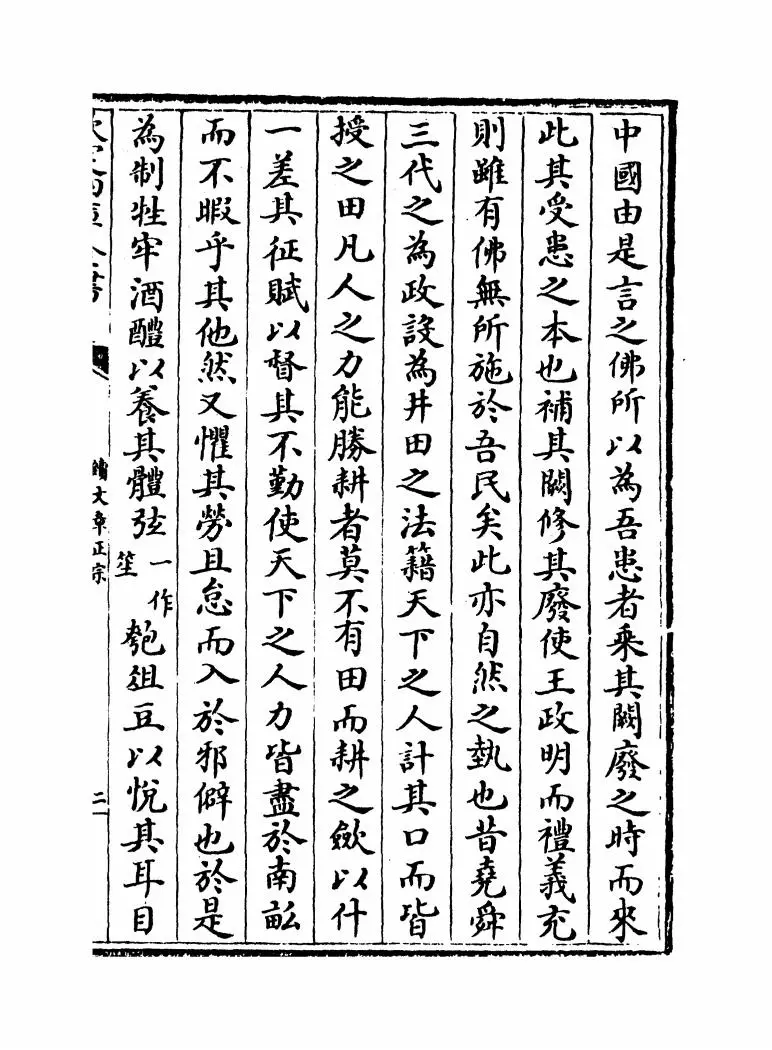 中國由是言之佛所以為吾患者乗其闕廢之時而來
此其受患之本也補其闕修其廢使王政明而禮義充
則雖有佛無所施於吾民矣此亦自然之埶也昔堯舜
三代之為政設為井田之法籍天下之人計其口而皆
授之田凡人之力能勝耕者莫不有田而耕之斂以什
一差其征賦以督其不勤使天下之人力皆盡於南畝
而不暇乎其他然又懼其勞且怠而入於邪僻也於是
為制牲牢酒醴以養其體弦一作笙匏俎豆以悅其耳目
續文章正宗
二